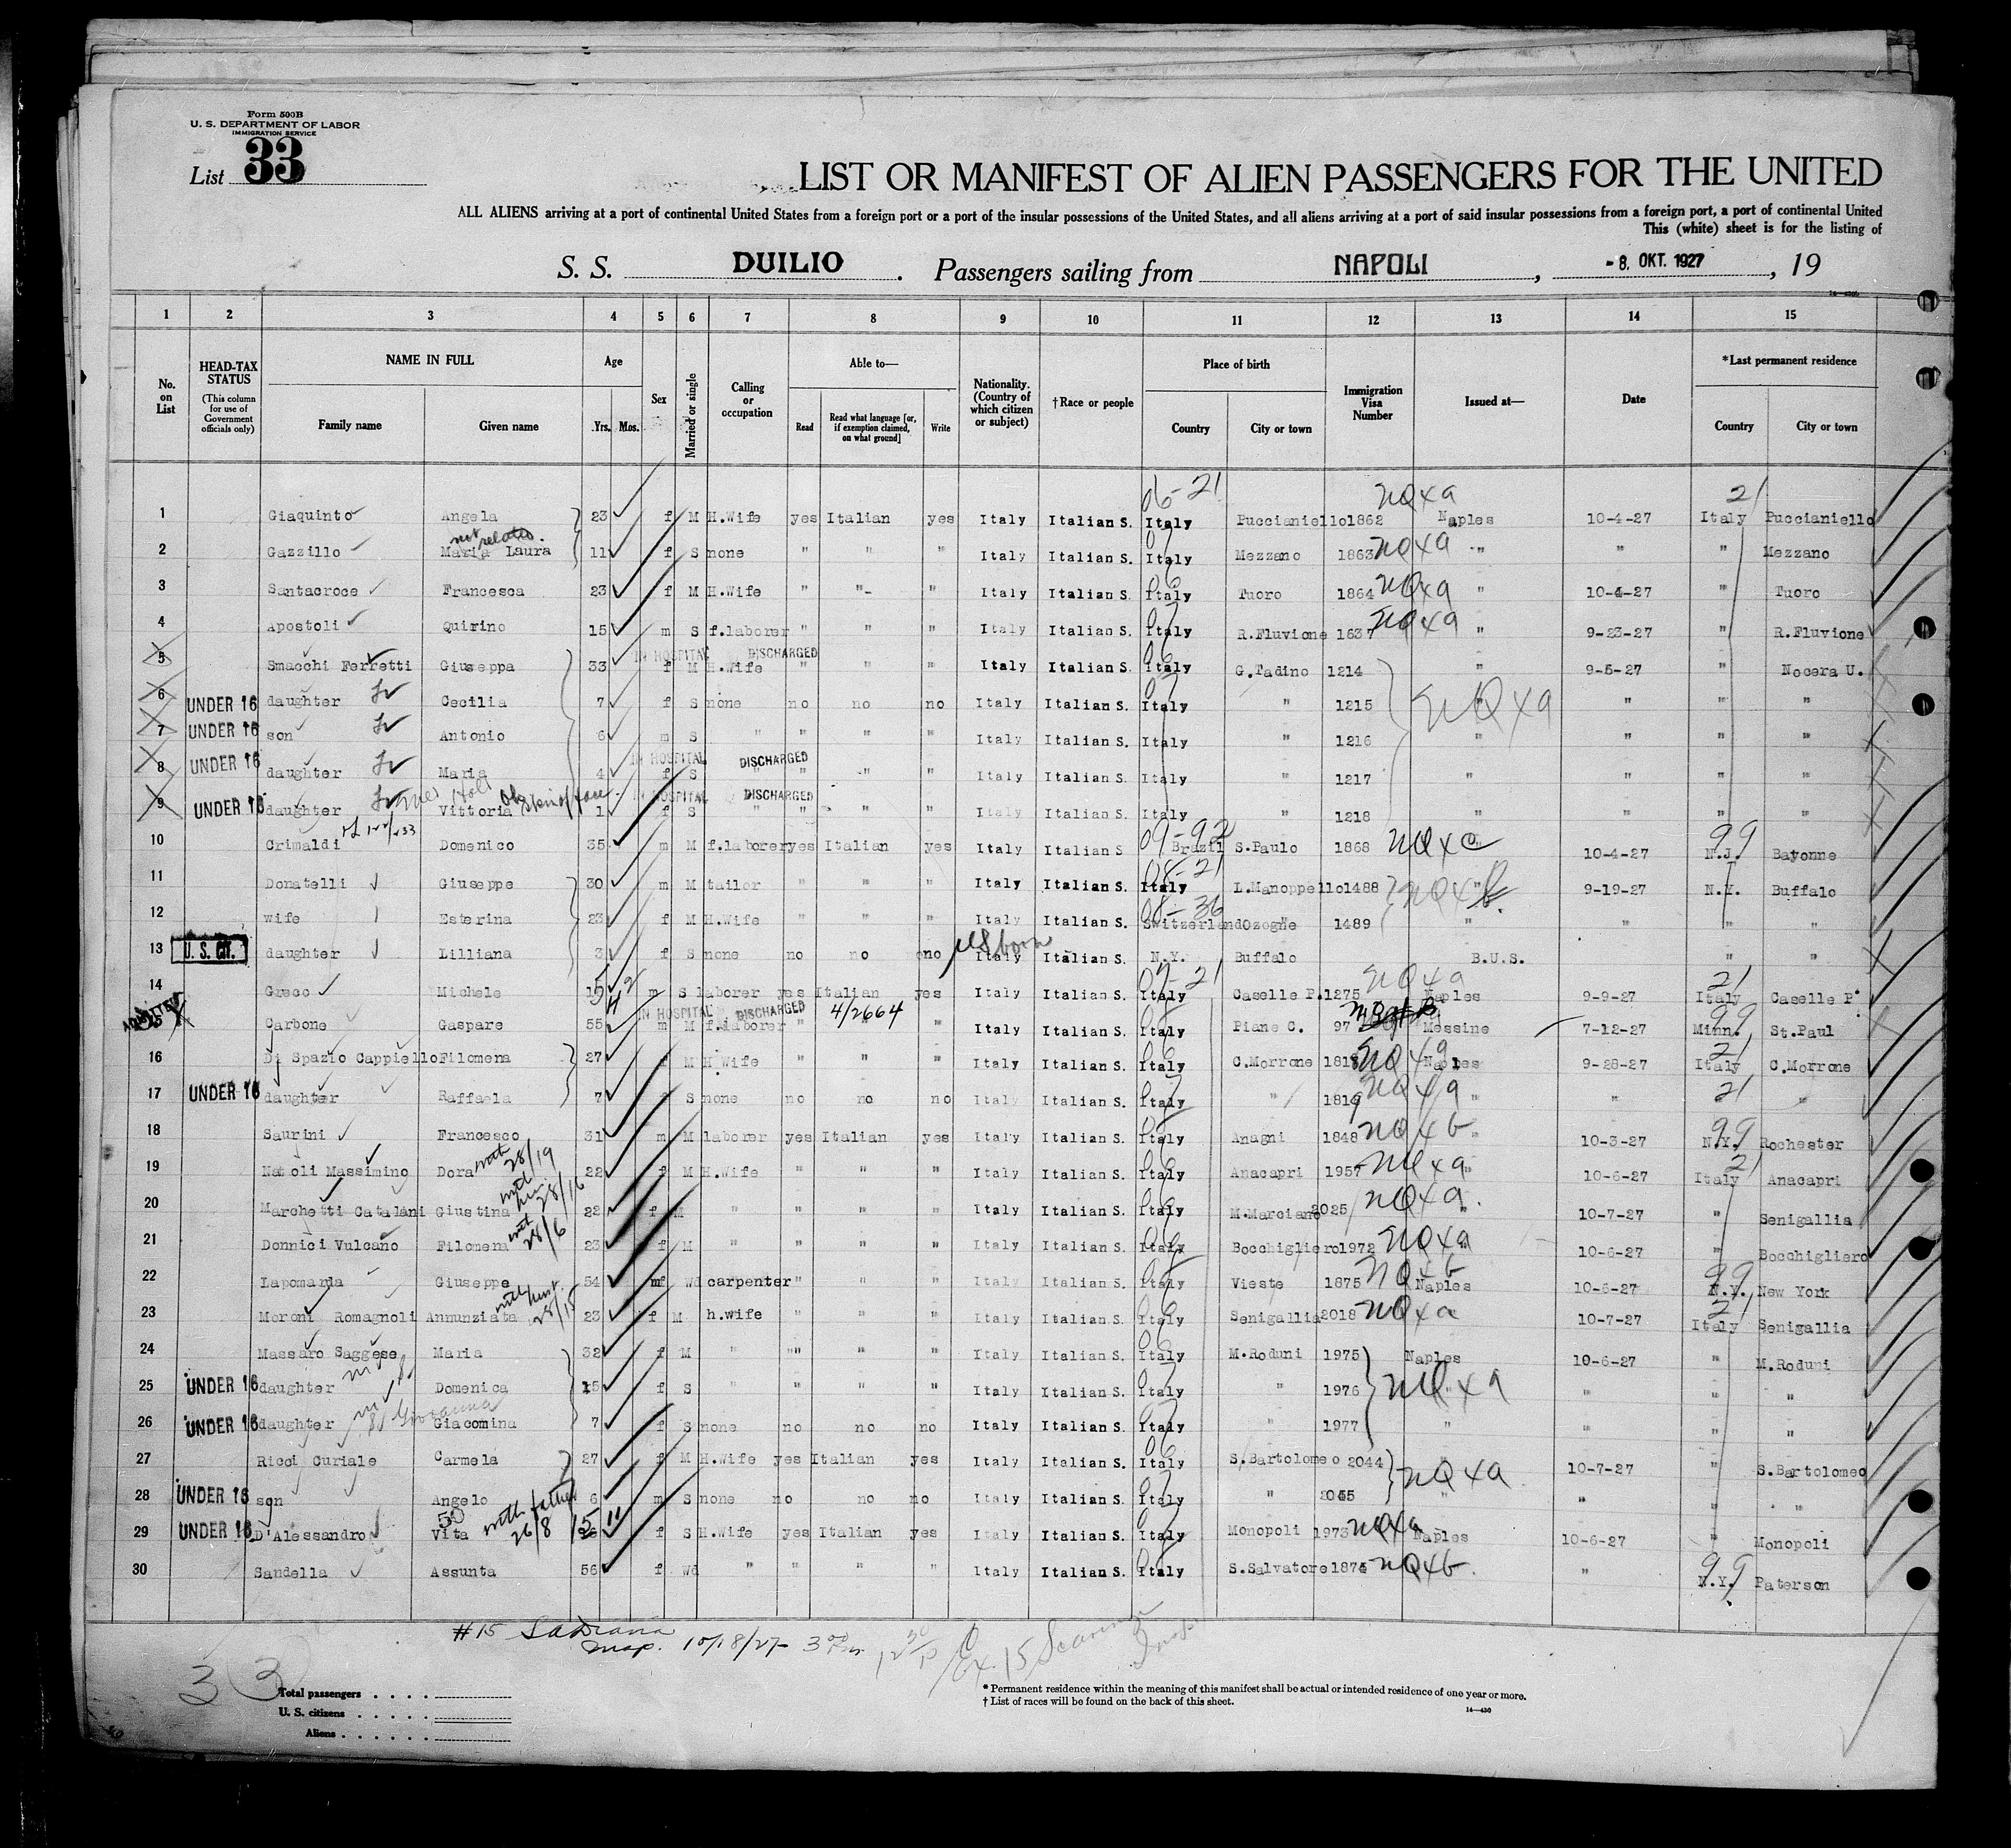 Form 500B
U. S. DEPARTMENT OF LABOR
IMMIGRATION SERVICE
List 33
LIST OR MANIFEST OF ALIEN PASSENGERS FOR THE UNITED
ALL ALIENS arriving at a port of continental United States from a foreign port or a port of the insular possessions of the United States, and all aliens arriving at a port of said insular possessions from a foreign port, a port of continental United
This (white) sheet is for the listing of
S. S. DUILIO. Passengers sailing from NAPOLI, - 8. OKT. 1927, 19
1 2 3 4 5 6 7 8 9 10 11 12 13 14 15
No. on List
HEAD-TAX STATUS (This column for use of Government officials only)
NAME IN FULL Family name Given name
Age Yrs. Mos.
Sex
Married or single
Calling or occupation
Able to— Read Read what language [or, if exemption claimed, on what ground] Write
Nationality. (Country of which citizen or subject)
†Race or people
Place of birth Country City or town
Immigration Visa Number
Issued at—
Date
*Last permanent residence Country City or town
06-21 NQXa 21
1 Giaquinto Angela 23 f M H.Wife yes Italian yes Italy Italian S. Italy Puccianiello 1862 Naples 10-4-27 Italy Puccianiello
2 Gazzillo Maria Laura 11 f S none " " " Italy Italian S. Italy Mezzano 1863 NQXa " " " Mezzano
3 Santacroce Francesca 23 f M H.Wife " " " Italy Italian S. Italy Tuoro 1864 NQXa " 10-4-27 " Tuoro
4 Apostoli Quirino 15 m S f.laborer " " " Italy Italian S. Italy R.Fluvione 1637 NQXa " 9-23-27 " R.Fluvione
IN HOSPITAL DISCHARGED
5 Smacchi Ferretti Giuseppa 33 f M H.Wife " " " Italy Italian S. Italy G.Tadino 1214 " 9-5-27 " Nocera U.
6 UNDER 16 daughter Cecilia 7 f S none no no no Italy Italian S. Italy " 1215 NQXa " " "
7 UNDER 16 son Antonio 6 m S " " " " Italy Italian S. Italy " 1216 " " " "
IN HOSPITAL DISCHARGED
8 UNDER 16 daughter Maria 4 f S " " " " Italy Italian S. Italy " 1217 " " " "
IN HOSPITAL DISCHARGED
9 UNDER 16 daughter Vittoria 1 f S " " " " Italy Italian S. Italy " 1218 " " " "
09-92 99
10 Crimaldi Domenico 35 m M f.laborer yes Italian yes Italy Italian S Brazil S.Paulo 1868 NQXc " 10-4-27 N.J. Bayonne
11 Donatelli Giuseppe 30 m M tailor " " " Italy Italian S. Italy L.Manoppello 1488 " 9-19-27 N.Y. Buffalo
12 wife Esterina 23 f M H.Wife " " " Italy Italian S. Switzerland Ozogne 1489 " " " "
13 U.S. CIT. daughter Lilliana 3 f S none no no no US born Italy Italian S. N.Y. Buffalo B.U.S. " "
NQXa 21
14 Greco Michele m S laborer yes Italian yes Italy Italian S. Italy Caselle P. 1275 Naples 9-9-27 Italy Caselle P.
IN HOSPITAL DISCHARGED 4/2664 99
ADMITTED Carbone Gaspare 55 m M f.laborer " " " Italy Italian S. Italy Piane C. 97 Messine 7-12-27 Minn. St.Paul
16 Di Spazio Cappiello Filomena 27 f M H.Wife " " " Italy Italian S. Italy C.Morrone 1818 NQXa Naples 9-28-27 Italy C.Morrone
17 UNDER 16 daughter Raffaela 7 f S none no no no Italy Italian S. Italy " 1819 NQXa " " 21 "
18 Saurini Francesco 31 m M laborer yes Italian yes Italy Italian S. Italy Anagni 1848 NQXb " 10-3-27 N.Y. 99 Rochester
19 Natoli Massimino Dora 28/19 22 f M H.Wife " " " Italy Italian S. Italy Anacapri 1957 NQXa " 10-6-27 Italy 21 Anacapri
20 Marchetti Catalani Giustina 28/16 22 f M " " " " Italy Italian S. Italy M.Marciano 2025 NQXa " 10-7-27 " Senigallia
21 Donnici Vulcano Filomena 28/6 23 f M " " " " Italy Italian S. Italy Bocchigliero 1972 NQXa " 10-6-27 " Bocchigliero
22 Lapomarda Giuseppe 54 Wd carpenter " " " Italy Italian S. Italy Vieste 1875 NQXb Naples 10-5-27 N.Y. 99 New York
23 Moroni Romagnoli Annunziata 28/15 23 f M h.wife " " " Italy Italian S. Italy Senigallia 2018 NQXa 10-7-27 Italy 21 Senigallia
24 Massaro Saggese Maria 32 f M " " " " Italy Italian S. Italy M.Roduni 1975 Naples 10-6-27 " M.Roduni
25 UNDER 16 daughter Domenica 15 f S " " " " Italy Italian S. Italy " 1976 NQXa " " "
26 UNDER 16 daughter Giovanna Giacomina 7 f S none no no no Italy Italian S. Italy " 1977 " " " "
27 Ricci Curiale Carmela 27 f M H.Wife yes Italian yes Italy Italian S. Italy S.Bartolomeo 2044 NQXa 10-7-27 " S.Bartolomeo
28 UNDER 16 son Angelo 6 m S none no no no Italy Italian S. Italy " 2045 " " " "
29 UNDER 16 D'Alessandro Vita with father 26/8 15 f S H.Wife yes Italian yes Italy Italian S. Italy Monopoli 1973 NQXa Naples 10-6-27 " Monopoli
30 Sandella Assunta 56 f Wd " " " " Italy Italian S. Italy S.Salvatore 1874 NQXb " N.Y. 99 Paterson
#15
Insp. 10/18/27 3 00
33
Total passengers
U. S. citizens
Aliens
* Permanent residence within the meaning of this manifest shall be actual or intended residence of one year or more.
† List of races will be found on the back of this sheet.
14—430